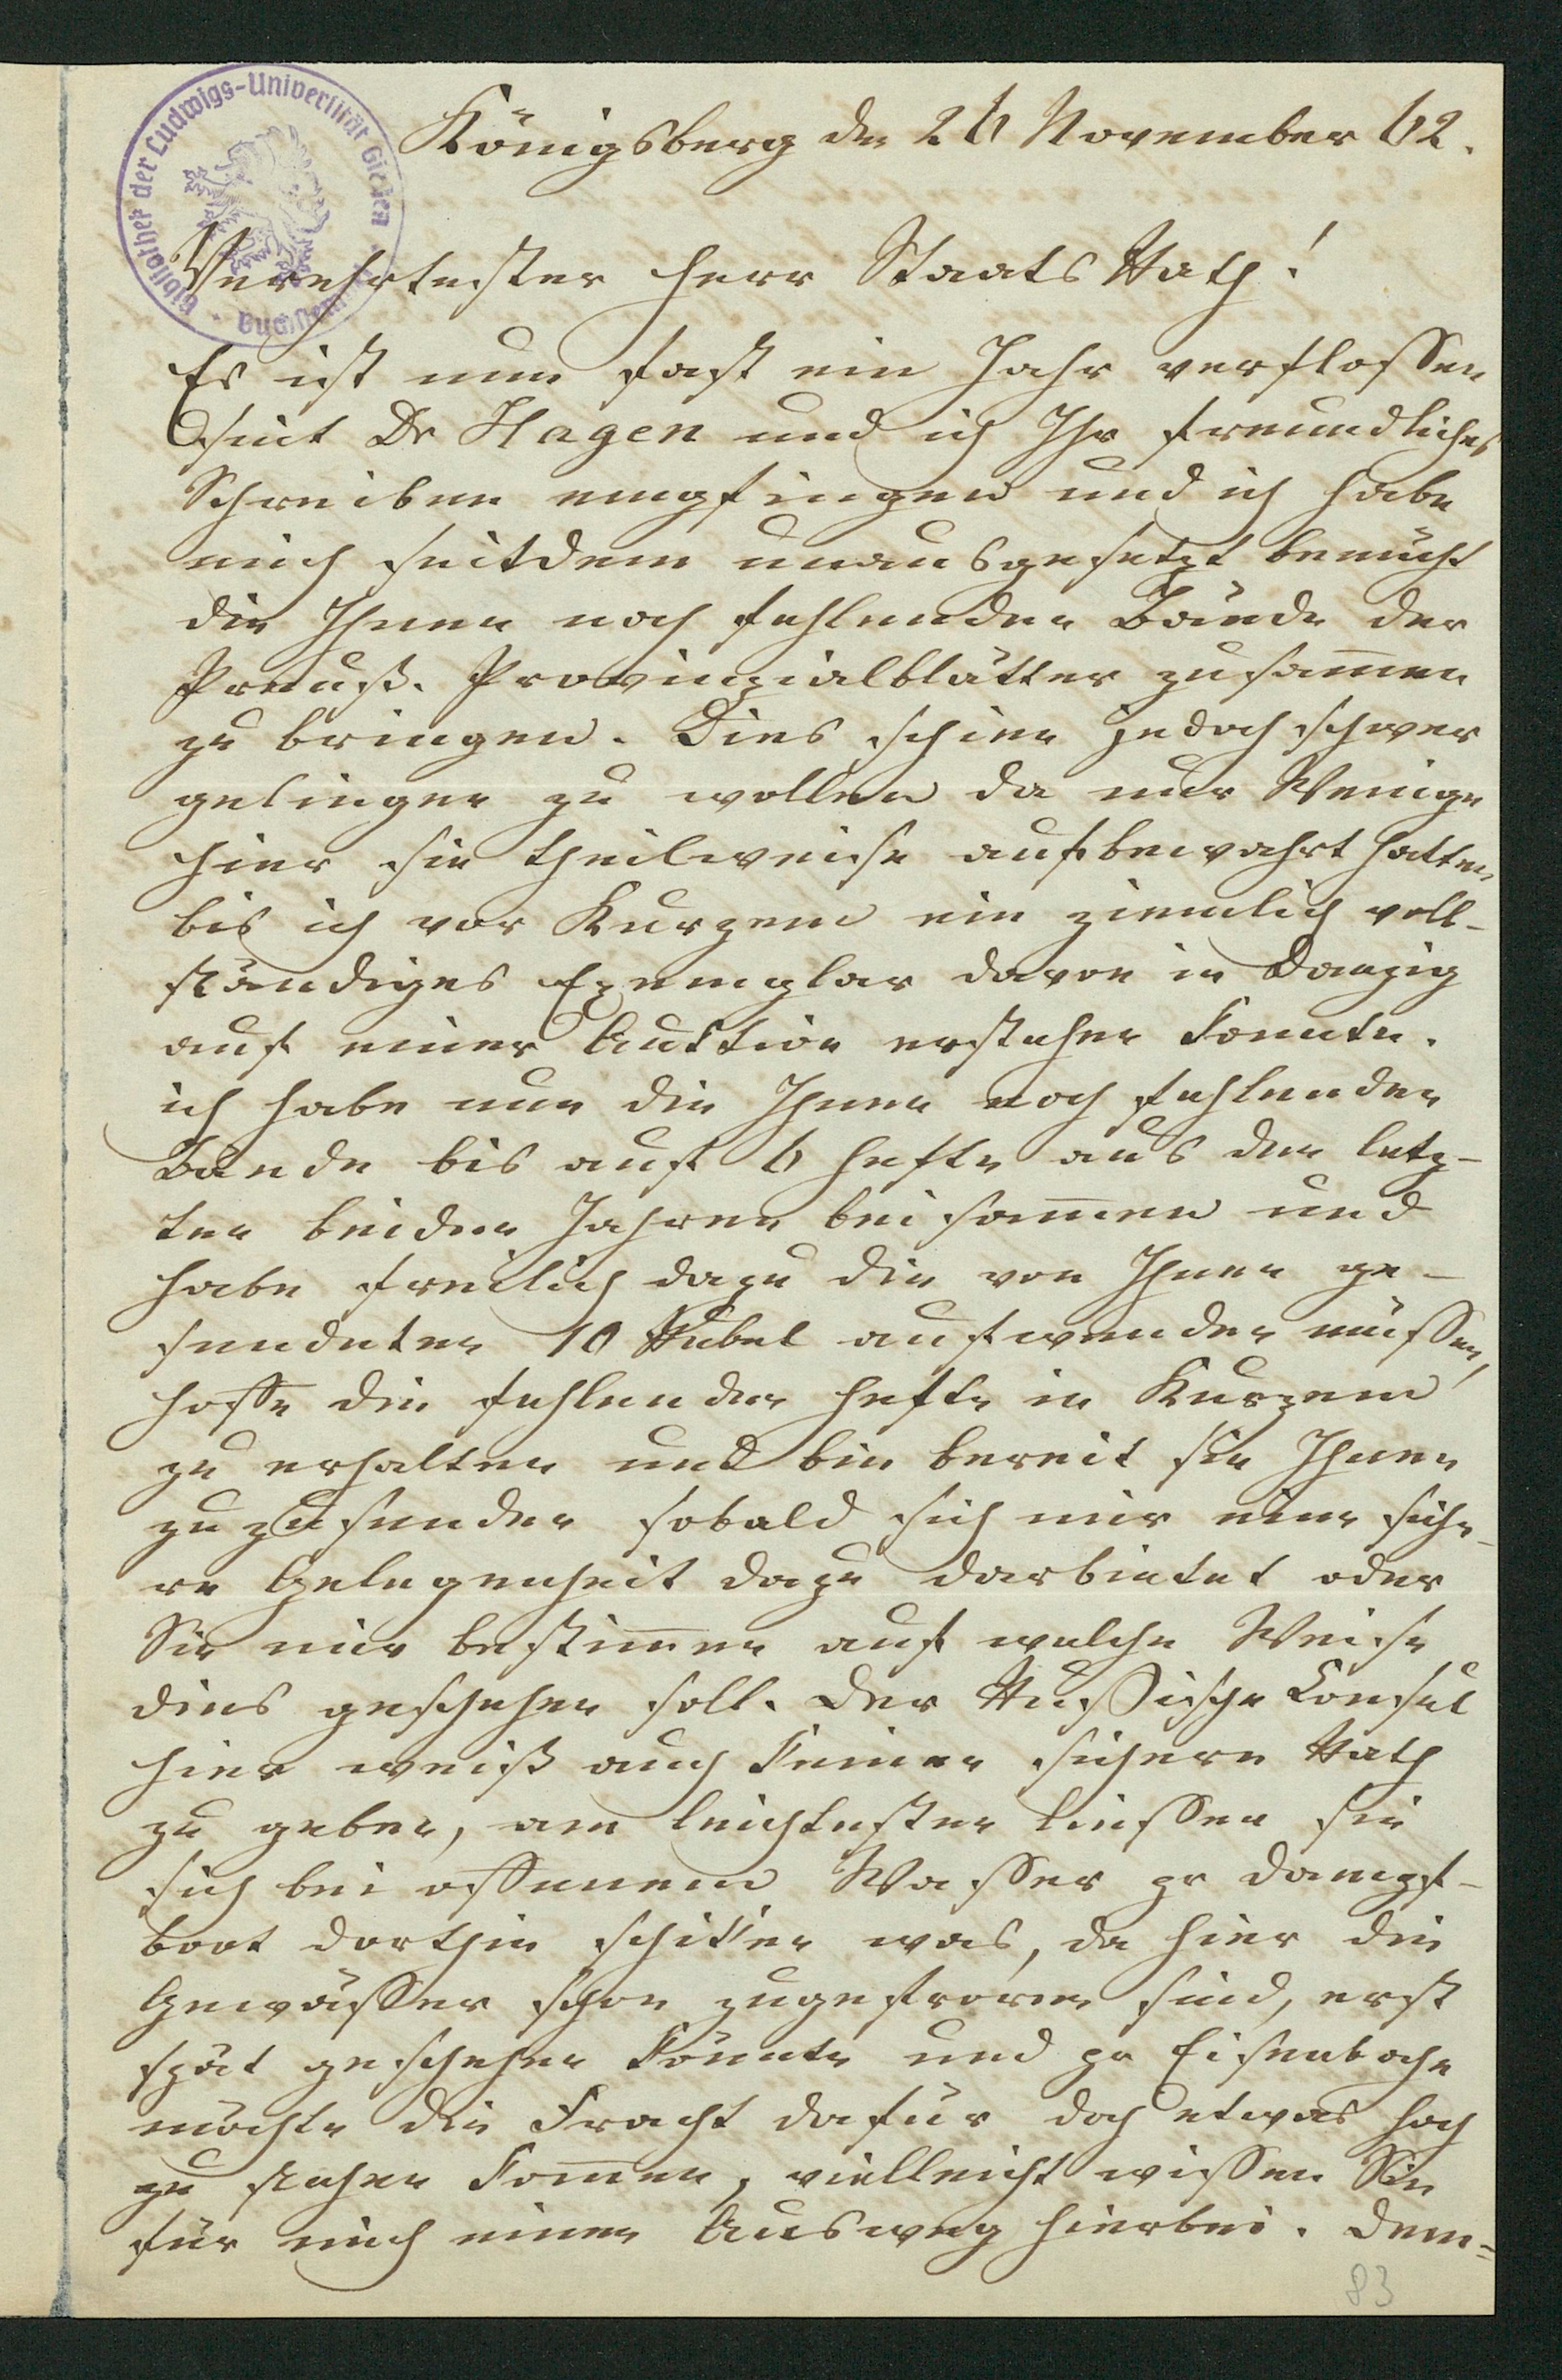 Königsberg den 26 November 62.
Bibliothek der Ludwigs-Universität Gießen
Verehrtester Herr Staats Rath!
Es ist nun fast ein Jahr verflossen
seit Dr Hagen und ich Ihr freundliches
Schreiben empfingen und ich habe
mich seitdem unausgesetzt bemüht
die Ihnen noch fehlenden Bände der
Preuß. Provinzialblätter zusam̄en
zu bringen. Dies schien jedoch schwer
gelingen zu wollen da nur Wenige
hier sie theilweise aufbewahrt hatten,
bis ich vor Kurzem ein ziemlich voll-
ständiges Exemplar davon in Danzig
auf einer Auktion erstehen konnte.
ich habe nun die Ihnen noch fehlenden
Bände bis auf 6 Hefte aus den letz-
ten beiden Jahren beisam̄en und
habe freilich dazu die von Ihnen ge-
sendeten 10 Rubel aufwenden müssen,
hoffe die fehlenden Hefte in Kurzem
zu erhalten und bin bereit sie Ihnen
zuzusenden sobald sich mir eine siche-
re Gelegenheit dazu darbietet oder
Sie mir bestim̄en auf welche Weise
dies geschehen soll. Der Russische Consul
hier weiß auch keinen sichern Rath
zu geben, am leichtesten liessen sie
sich bei offenem Wasser pr Dampf-
boot dorthin schikken was, da hier die
Gewässer schon zugefroren sind, erst
spät geschehen könnte und pr Eisenbahn
möchte die Fracht dafür doch etwas hoch
zu stehen kom̄en, vielleicht wissen Sie
für mich einen Ausweg hierbei. Dem-
83